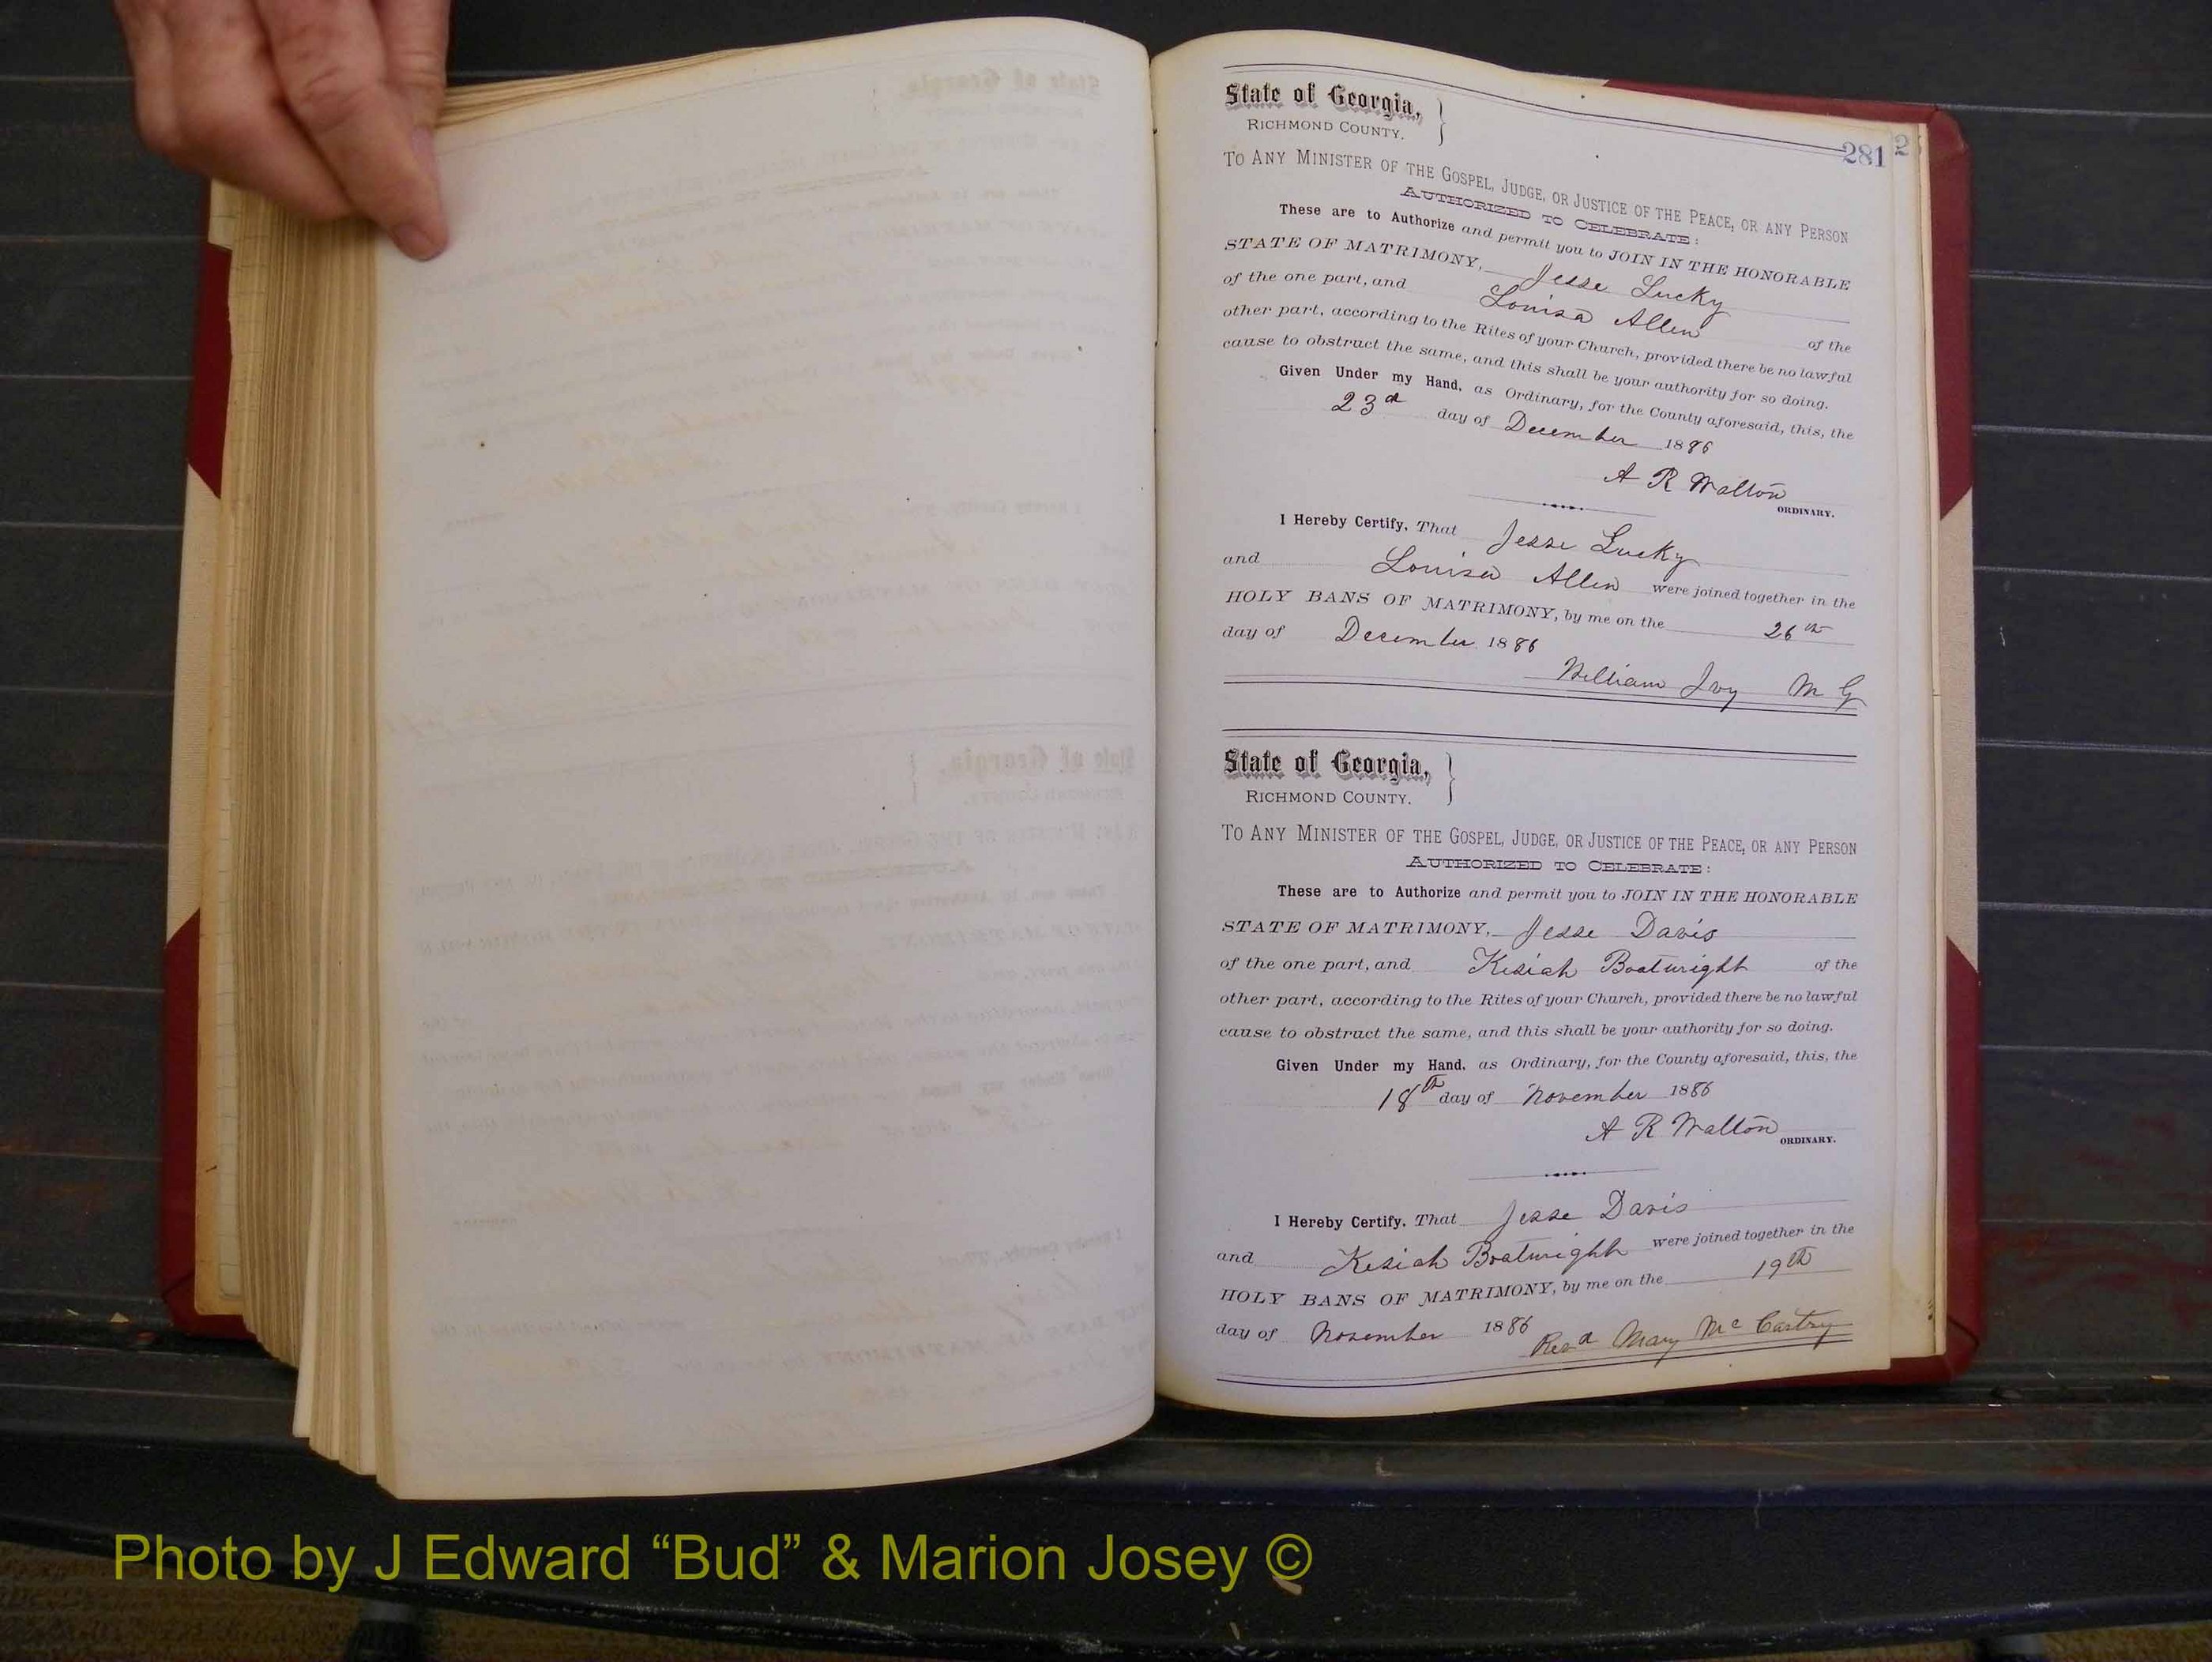 281
State of Georgia,
RICHMOND COUNTY.
TO ANY MINISTER OF THE GOSPEL, JUDGE, OR JUSTICE OF THE PEACE, OR ANY PERSON
AUTHORIZED TO CELEBRATE:
These are to Authorize and permit you to JOIN IN THE HONORABLE
STATE OF MATRIMONY, Jesse Lucky
of the one part, and Louisa Allen of the
other part, according to the Rites of your Church, provided there be no lawful
cause to obstruct the same, and this shall be your authority for so doing.
Given Under my Hand, as Ordinary, for the County aforesaid, this, the
23d day of December 1886
A R Walton
ORDINARY.
I Hereby Certify, That Jesse Lucky
and Louisa Allen were joined together in the
HOLY BANS OF MATRIMONY, by me on the 26th
day of December 1886
William Ivy M G
State of Georgia,
RICHMOND COUNTY.
TO ANY MINISTER OF THE GOSPEL, JUDGE, OR JUSTICE OF THE PEACE, OR ANY PERSON
AUTHORIZED TO CELEBRATE:
These are to Authorize and permit you to JOIN IN THE HONORABLE
STATE OF MATRIMONY, Jesse Davis
of the one part, and Kesiah Boatwright of the
other part, according to the Rites of your Church, provided there be no lawful
cause to obstruct the same, and this shall be your authority for so doing.
Given Under my Hand, as Ordinary, for the County aforesaid, this, the
18th day of November 1886
A R Walton
ORDINARY.
I Hereby Certify, That Jesse Davis
and Kesiah Boatwright were joined together in the
HOLY BANS OF MATRIMONY, by me on the 19th
day of November 1886
Revd Mary Mc Cartry
Photo by J Edward “Bud” & Marion Josey ©